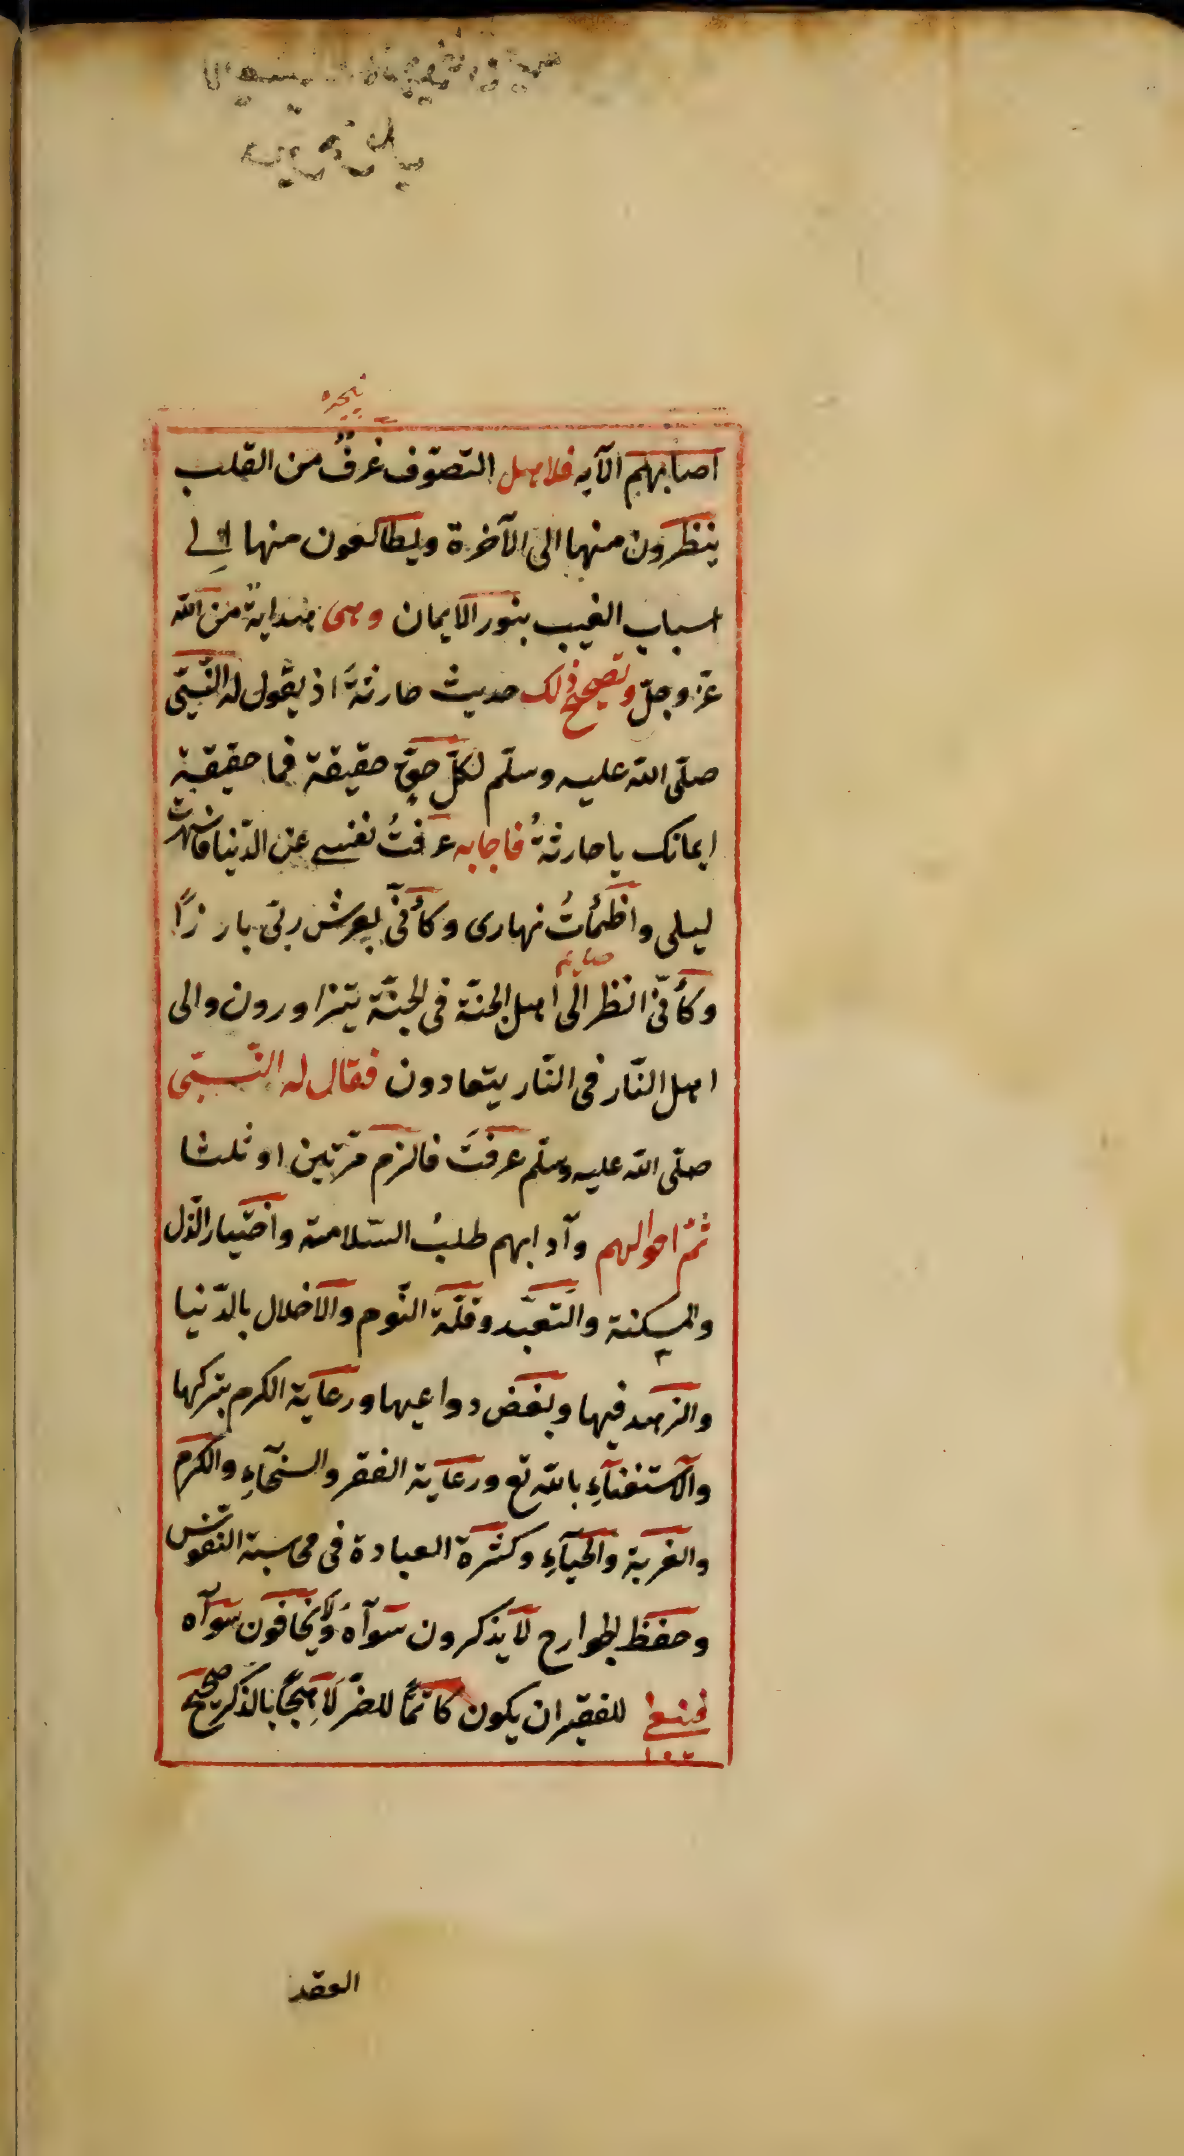 اصابهم الآيه فلاهل التصوّف غرفٌ من القلب
ينظرون منها الى الآخرة ويطالعون منها الے
اسباب الغيب بنور الايمان وهى هدايةٌ من الله
عزّ وجلّ وتصحيح ذلك حديث حارثةَ اذ يقول له النّبىّ
صلّى الله عليه وسلّم لكلّ حقٍّ حقيقة فما حقيقة
ايمانك يا حارثةُ فاجابه عرفتُ نفسى عن الدّنيا فاسهرت
ليلى واظمأتُ نهارى وكأنّى بعرش ربّى بارزًا
وكأنّى انظر الى اهل الجنّة فى الجنّة يتزاورون والى
اهل النّار فى النّار يتعادون فقال له النّبىّ
صلّى الله عليه وسلّم عرفتَ فالزم مرّتين او ثلثا
ثمّ احوالهم وآدابهم طلبُ السّلامة واختيار الذّل
والمسكنة والتّعبّد وقلّة النّوم والاخلال بالدّنيا
والزهد فيها وبغض دواعيها ورعاية الكرم بتركها
والاستغنآءِ بالله تع ورعاية الفقر والسخآءِ والكرم
والغربة والحيآءِ وكثرة العبادة فى محاسبة النفوس
وحفظ الجوارح لا يذكرون سوآهُ ولا يخافون سوآه
فينبغى للفقير ان يكون كاتمًا للضرّ لاهجًا بالذكر صحيح
العقد